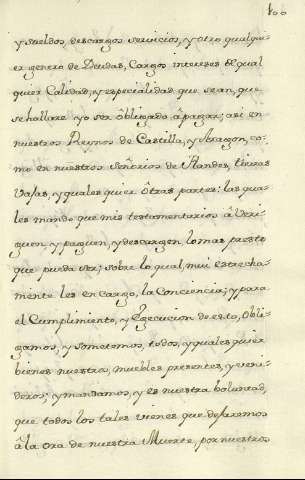 100
y sueldos, descargos servicios, y otro qualqui-
er genero de Deudas, Cargos intereses de qual
quier Calidad, y especialidad que sean, que
se hallare yo ser obligado â pagar; asi en
nuestros Reynos de Castilla, y Aragon, co-
mo en nuestros Señorios de Flandes, tierras
Vajas, y quales quier ôtras partes: las qua-
les mando que mis testamentarios âveri-
guen, y paguen, y descargen lo mas presto
que pueda ser; sobre lo qual, mui estrecha-
mente les encargo, la Conciencia; y para
el Cumplimiento, y Egecucion de esto, Obli-
gamos, y sometemos, todos, y quales quier
bienes nuestros, muebles presentes, y veni-
deros; y mandamos, y es nuestra boluntad,
que todos los tales vienes que dejaremos
â la ora de nuestra Muerte, por nuestros